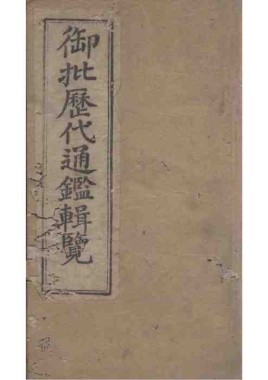 御批歷代通鑑輯覽